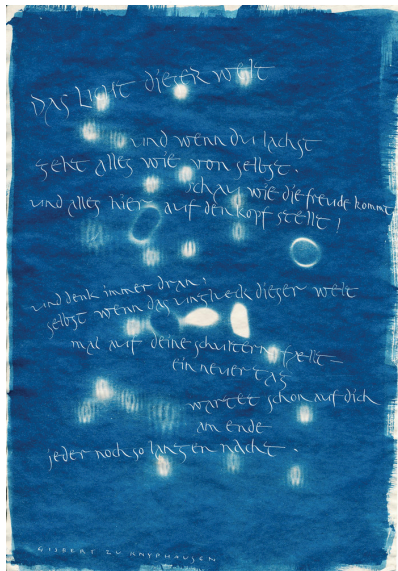 Das Licht dieser Welt
und wenn du lachst
geht alles wie von selbst.
schau wie die freude kommt
und alles hier auf den kopf stellt!
und denk immer dran:
selbst wenn das unglueck dieser welt
mal auf deine schultern faellt
ein neuer tag
wartet schon auf dich
am ende
jeder noch so langen nacht.
GISBERT ZU KNYPHAUSEN